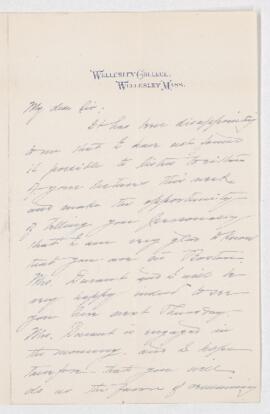 WELLESLEY COLLEGE,
WELLESLEY, MASS.
My dear Sir:
It has been disappointing
to me that I have not found
it possible to listen to either
of your lectures this week
and make the opportunity
of telling you personally
that I am very glad to know
that you are in Boston.
Mrs. Durant and I will be
very happy indeed to see
you here next Thursday.
Mrs. Durant is engaged in
the morning, and I hope
therefore that you will
do us the favor of remaining